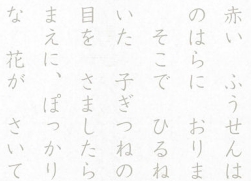 赤い　ふうせんは
のはらに　おりま
　そこで　ひるね
いた　子ぎつねの
目を　さましたら
まえに、ぽっかり
な　花が　さいて